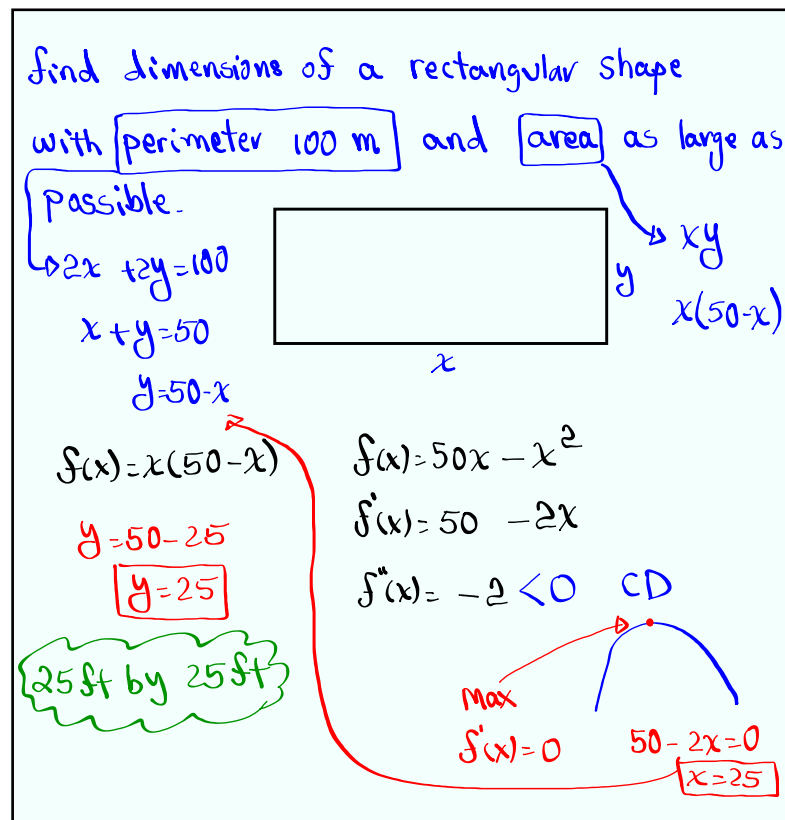 find dimensions of a rectangular shape
with perimeter 100 m and area as large as
possible.
2x +2y=100
x+y=50
y=50-x
y
x
xy
x(50-x)
f(x)=x(50-x)
y=50-25
y=25
25ft by 25ft
f(x)=50x-x²
f'(x)=50 -2x
f"(x)= -2 <0 CD
Max
f'(x)=0
50-2x=0
x=25